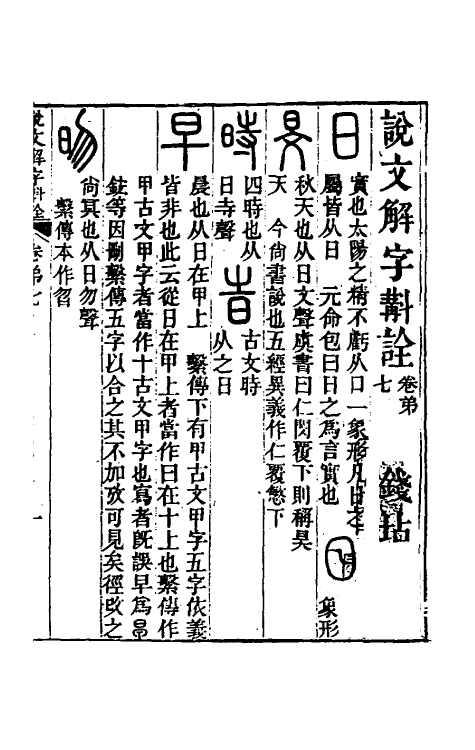 說文解字斠詮 卷弟七 錢坫
日 實也太陽之精不虧从口一象形凡日之
屬皆从日 元命包曰日之爲言實也 象形
旻 秋天也从日文聲虞書曰仁閔覆下則稱旻
天 今尚書說也五經異義作仁覆愍下
時 四時也从日寺聲 古文時从之日
早 晨也从日在甲上 繫傳下有甲古文甲字五字依義
皆非也此云從日在甲上者當作日在十上也繫傳作
甲古文甲字者當作十古文甲字也寫者旣誤早爲
鉉等因刪繫傳五字以合之其不加攷可見矣徑改之
昒 尙冥也从日勿聲
繫傳本作曶
說文解字斠詮 卷弟七 一